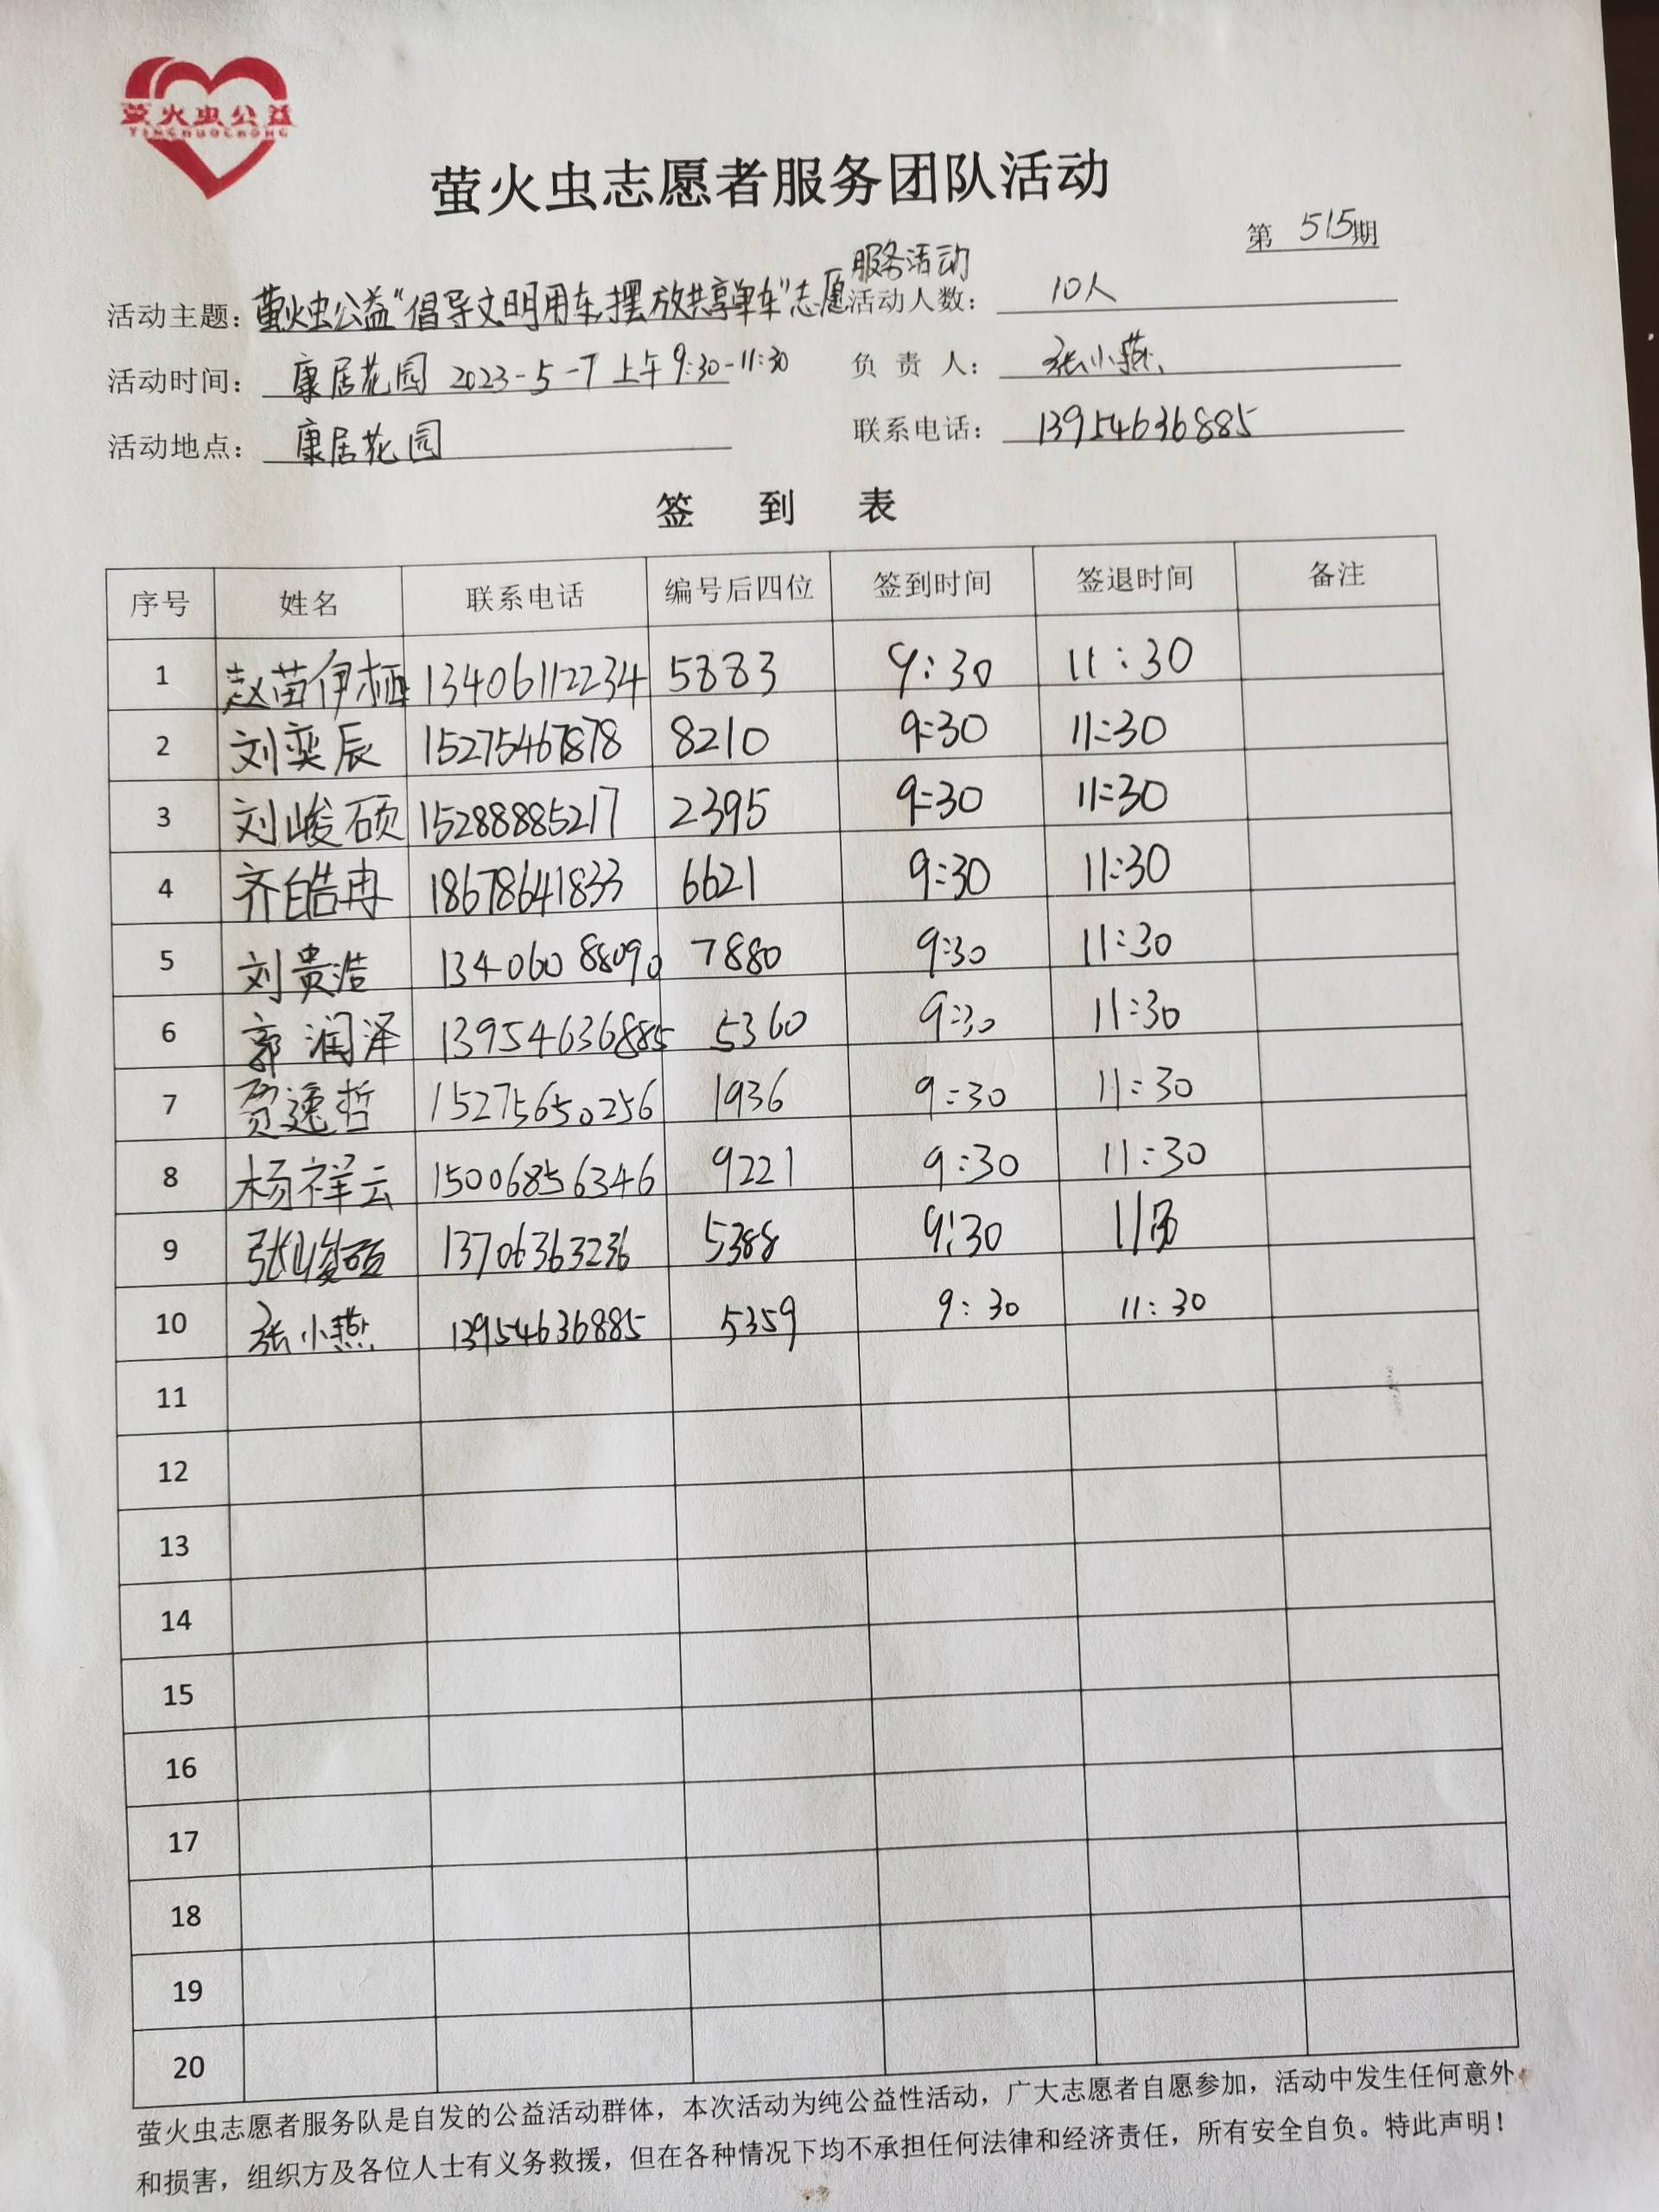 萤火虫公益
YINGHUOCHONG
萤火虫志愿者服务团队活动
第 515期
服务活动
活动主题：萤火虫公益“倡导文明用车,摆放共享单车”志愿 活动人数： 10人
活动时间： 康居花园 2023-5-7 上午9:30-11:30 负 责 人： 张小燕
活动地点： 康居花园 联系电话： 13954636885
签 到 表
序号 姓名 联系电话 编号后四位 签到时间 签退时间 备注
1 赵苗伊桠 13406112234 5883 9:30 11:30
2 刘奕辰 15275467878 8210 9:30 11:30
3 刘峻硕 15288885217 2395 9:30 11:30
4 齐皓冉 18678641833 6621 9:30 11:30
5 刘贵浩 13406088090 7880 9:30 11:30
6 郭润泽 13954636885 5360 9:30 11:30
7 贾逸哲 15275650256 1936 9:30 11:30
8 杨祥云 15006856346 9221 9:30 11:30
9 张峻硕 13706363236 5388 9:30
10 张小燕 13954636885 5359 9:30 11:30
11
12
13
14
15
16
17
18
19
20
萤火虫志愿者服务队是自发的公益活动群体，本次活动为纯公益性活动，广大志愿者自愿参加，活动中发生任何意外
和损害，组织方及各位人士有义务救援，但在各种情况下均不承担任何法律和经济责任，所有安全自负。特此声明！